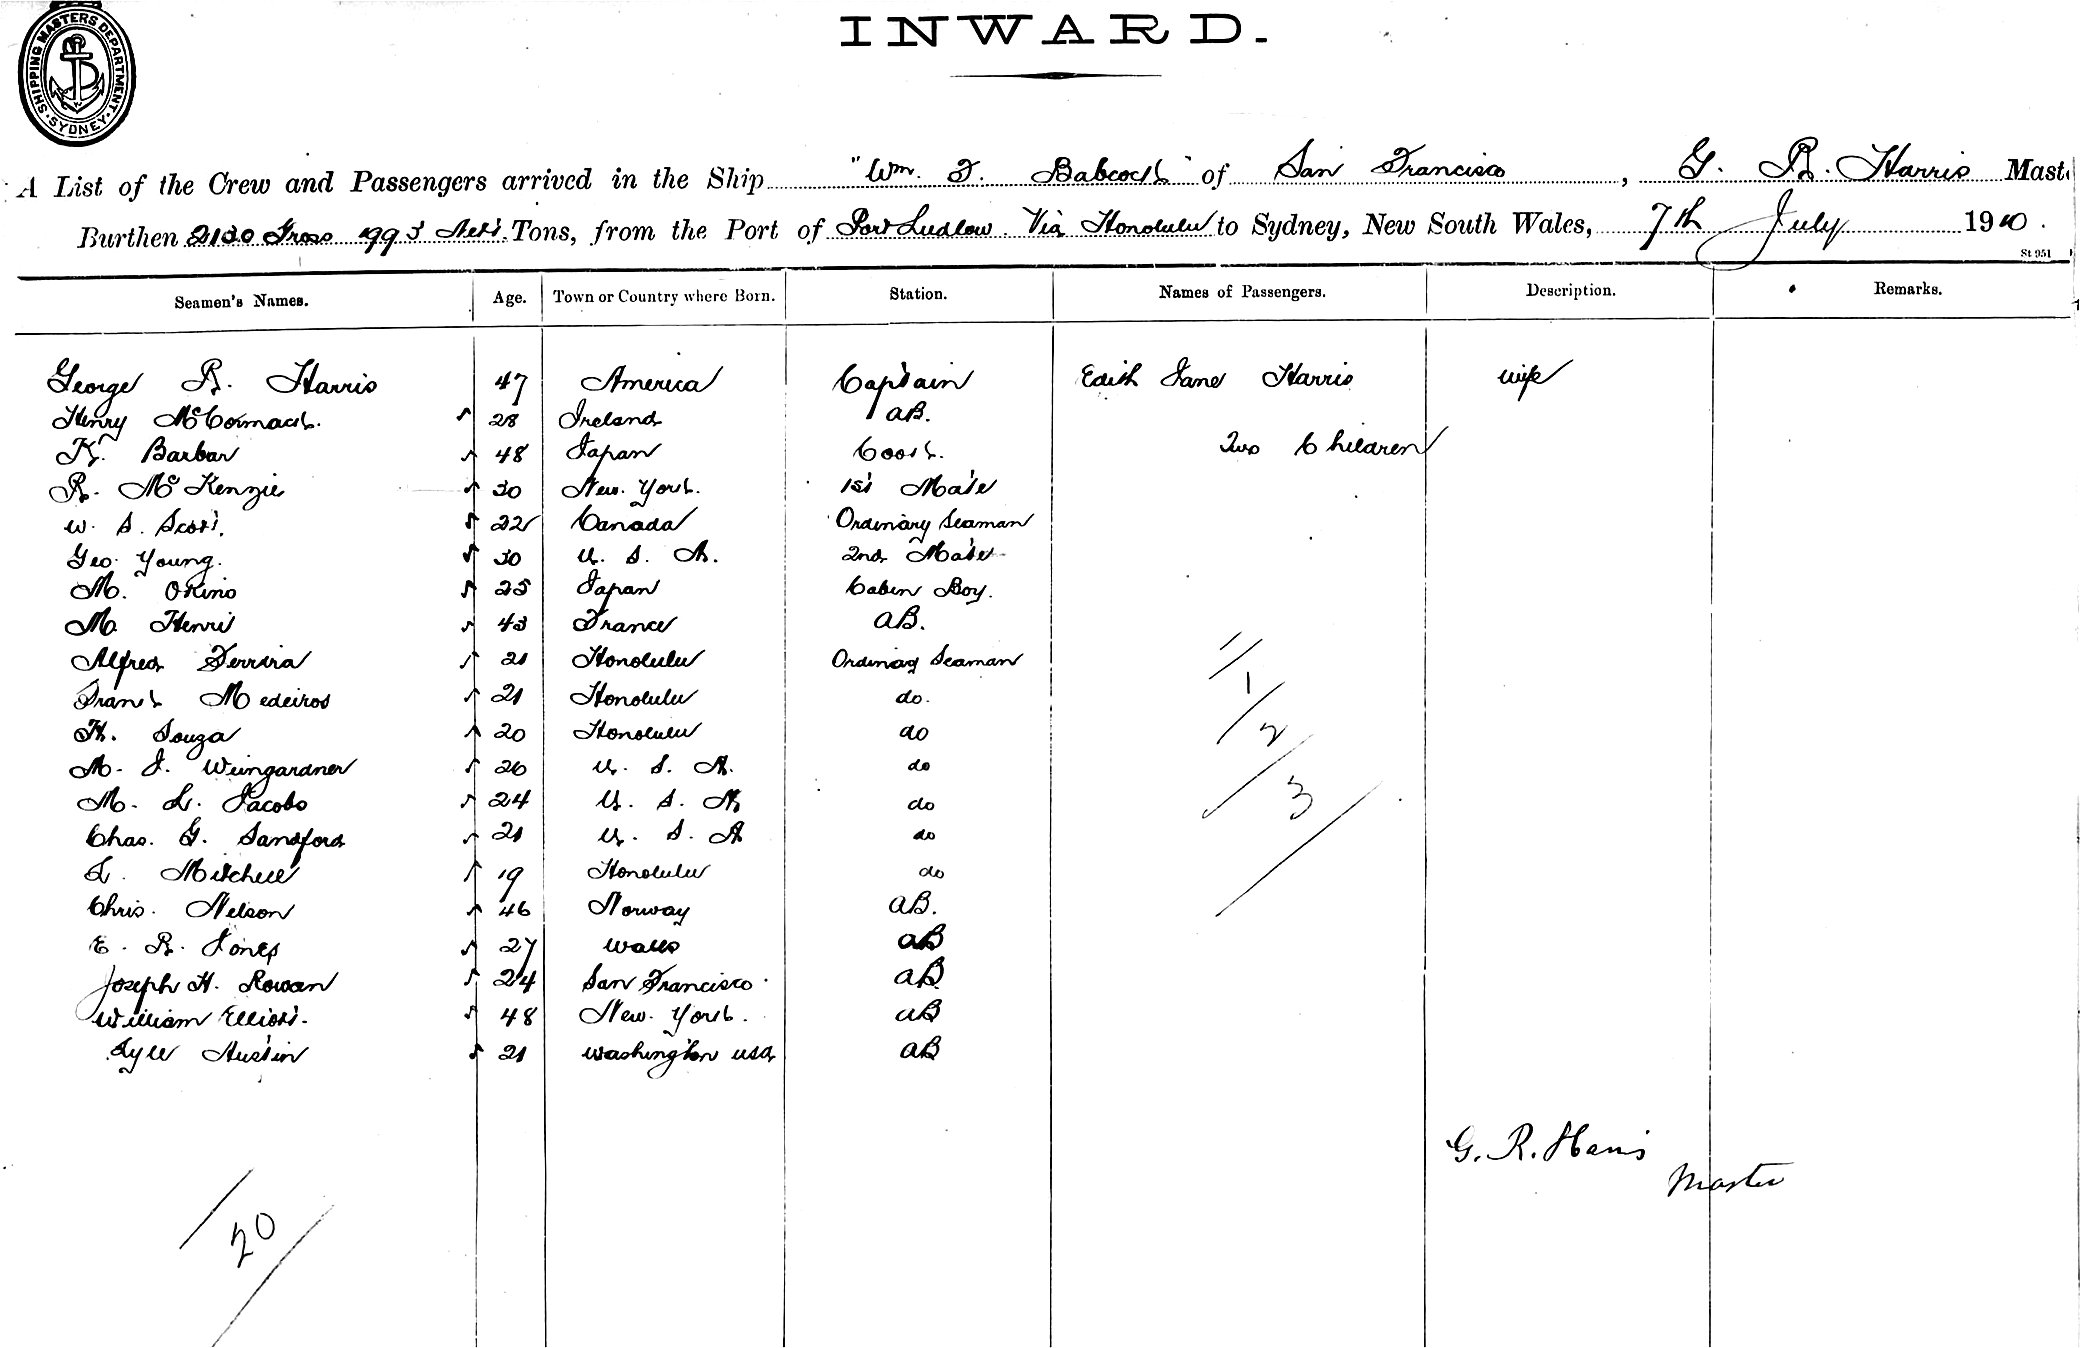 SHIPPING MASTERS DEPARTMENT · SYDNEY ·
INWARD.
A List of the Crew and Passengers arrived in the Ship "Wm. F. Babcock" of San Francisco, G. R. Harris Maste
Burthen 2130 Gross 1993 Nett Tons, from the Port of Port Ludlow Via Honolulu to Sydney, New South Wales, 7th July 1910.
St 951
Seamen's Names. Age. Town or Country where Born. Station. Names of Passengers. Description. Remarks.
George R. Harris 47 America Captain Edith Jane Harris wife
Henry McCormack. 28 Ireland AB.
Two Children
K. Barbar 48 Japan Cook.
R. McKenzie 30 New York. 1st Mate
W. S. Scott. 22 Canada Ordinary Seaman
Geo. Young. 30 U. S. A. 2nd Mate
M. Okino 25 Japan Cabin Boy.
M. Henri 43 France AB.
Alfred Ferrira 21 Honolulu Ordinary Seaman
Frank Medeiros 21 Honolulu do.
H. Souza 20 Honolulu do
M. J. Weingardner 26 U. S. A. do
M. L. Jacobs 24 U. S. A do
Chas. G. Sandford 21 U. S. A do
L. Mitchell 19 Honolulu do
Chris. Nelson 46 Norway AB.
E. R. Jones 27 Wales AB
Joseph H. Rowan 24 San Francisco AB
William Elliott. 48 New York. AB
Lyle Austin 21 Washington USA AB
1
2
3
G. R. Harris
Master
20